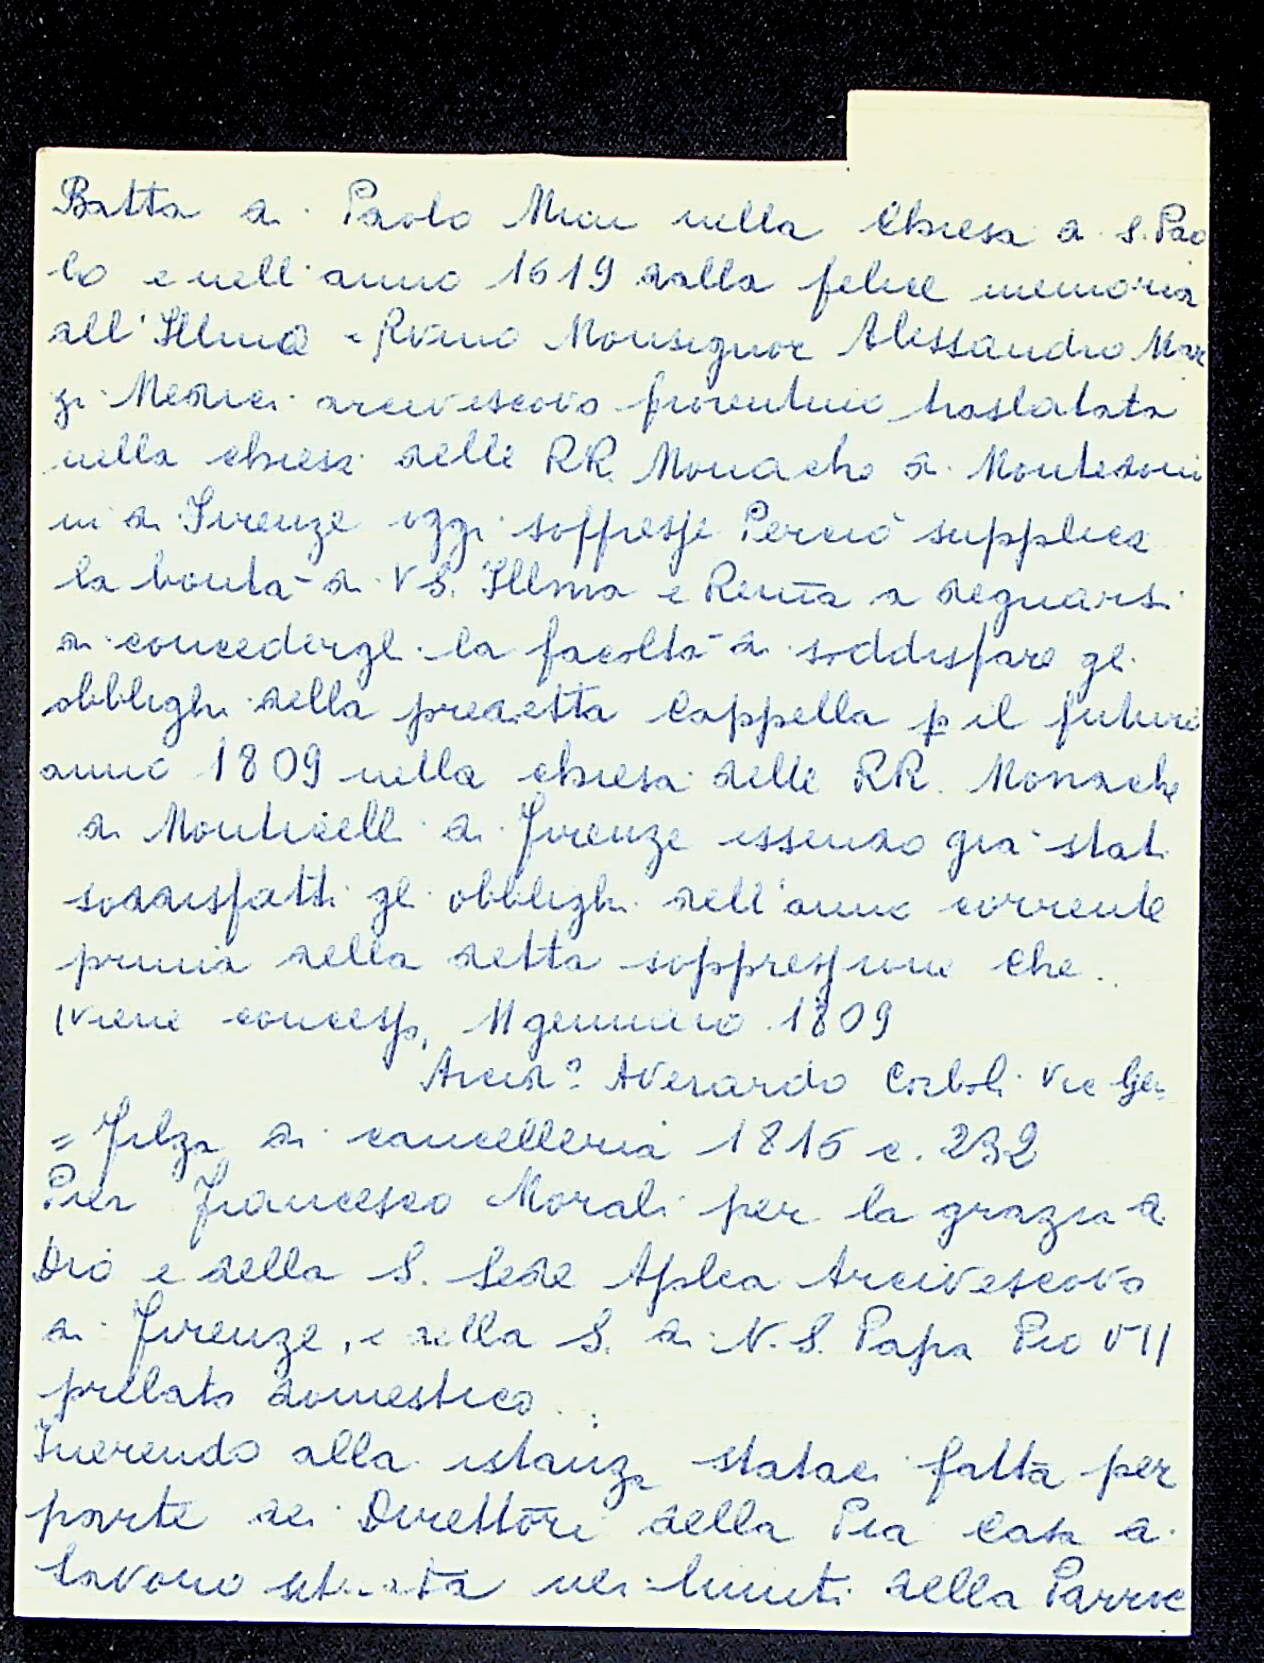 Batta di Paolo Mini nella Chiesa di S. Pao
lo e nell'anno 1619 dalla felice memoria
dell'Illmo e Rvmo Monsignor Alessandro Mar
zi Medici arcivescovo fiorentino traslatata
nella chiesa delle RR. Monache di Montedomi
ni di Firenze oggi soppresse Perciò supplica
la bontà di VS. Illma e Revma a degnarsi
di concedergli la facoltà di soddisfare gli
obblighi della predetta Cappella p il futuro
anno 1809 nella chiesa delle RR. Monache
di Monticelli di Firenze essendo già stati
soddisfatti gli obblighi dell'anno corrente
prima della detta soppressione Che..
(viene concesso, 11 gennaio 1809
Arcid.º Averardo Corboli Vic Gen.
= Filza di cancelleria 1815 c. 232
Pier Francesco Morali per la grazia di
Dio e della S. Sede Aplca Arcivescovo
di Firenze, e della S. di N.S. Papa Pio VII
prelato domestico..:
Inerendo alla istanza stataci fatta per
parte dei Direttori della Pia Casa di
lavoro situata nei limiti della Parroc